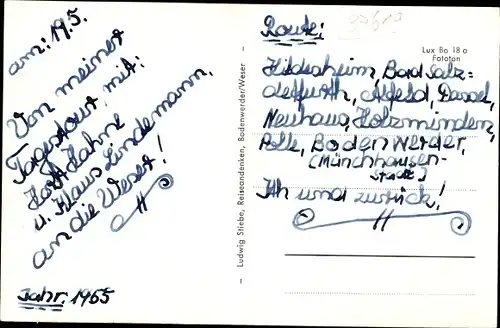 am: 19.5.
Von meiner
Tagestour, mit:
Horst Hahne
u. Klaus Lindemann,
an die Weser!
Jahr: 1965
Ludwig Stiebe, Reiseandenken, Bodenwerder/Weser
Route:
Lux Bo 18 a
Fototon
Hildesheim, Bad Salz=
detfurth, Alfeld, Dassel,
Neuhaus, Holzminden,
Polle, Bodenwerder,
(Münchhausen-
Stadt)
Ith und zurück!